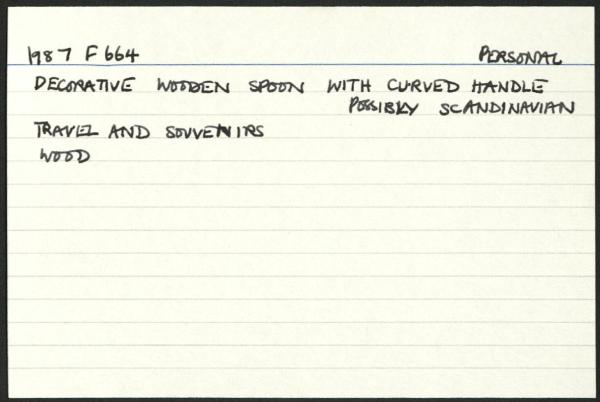 1987 F 664 PERSONAL
DECORATIVE WOODEN SPOON WITH CURVED HANDLE
POSSIBLY SCANDINAVIAN
TRAVEL AND SOUVENIRS
WOOD